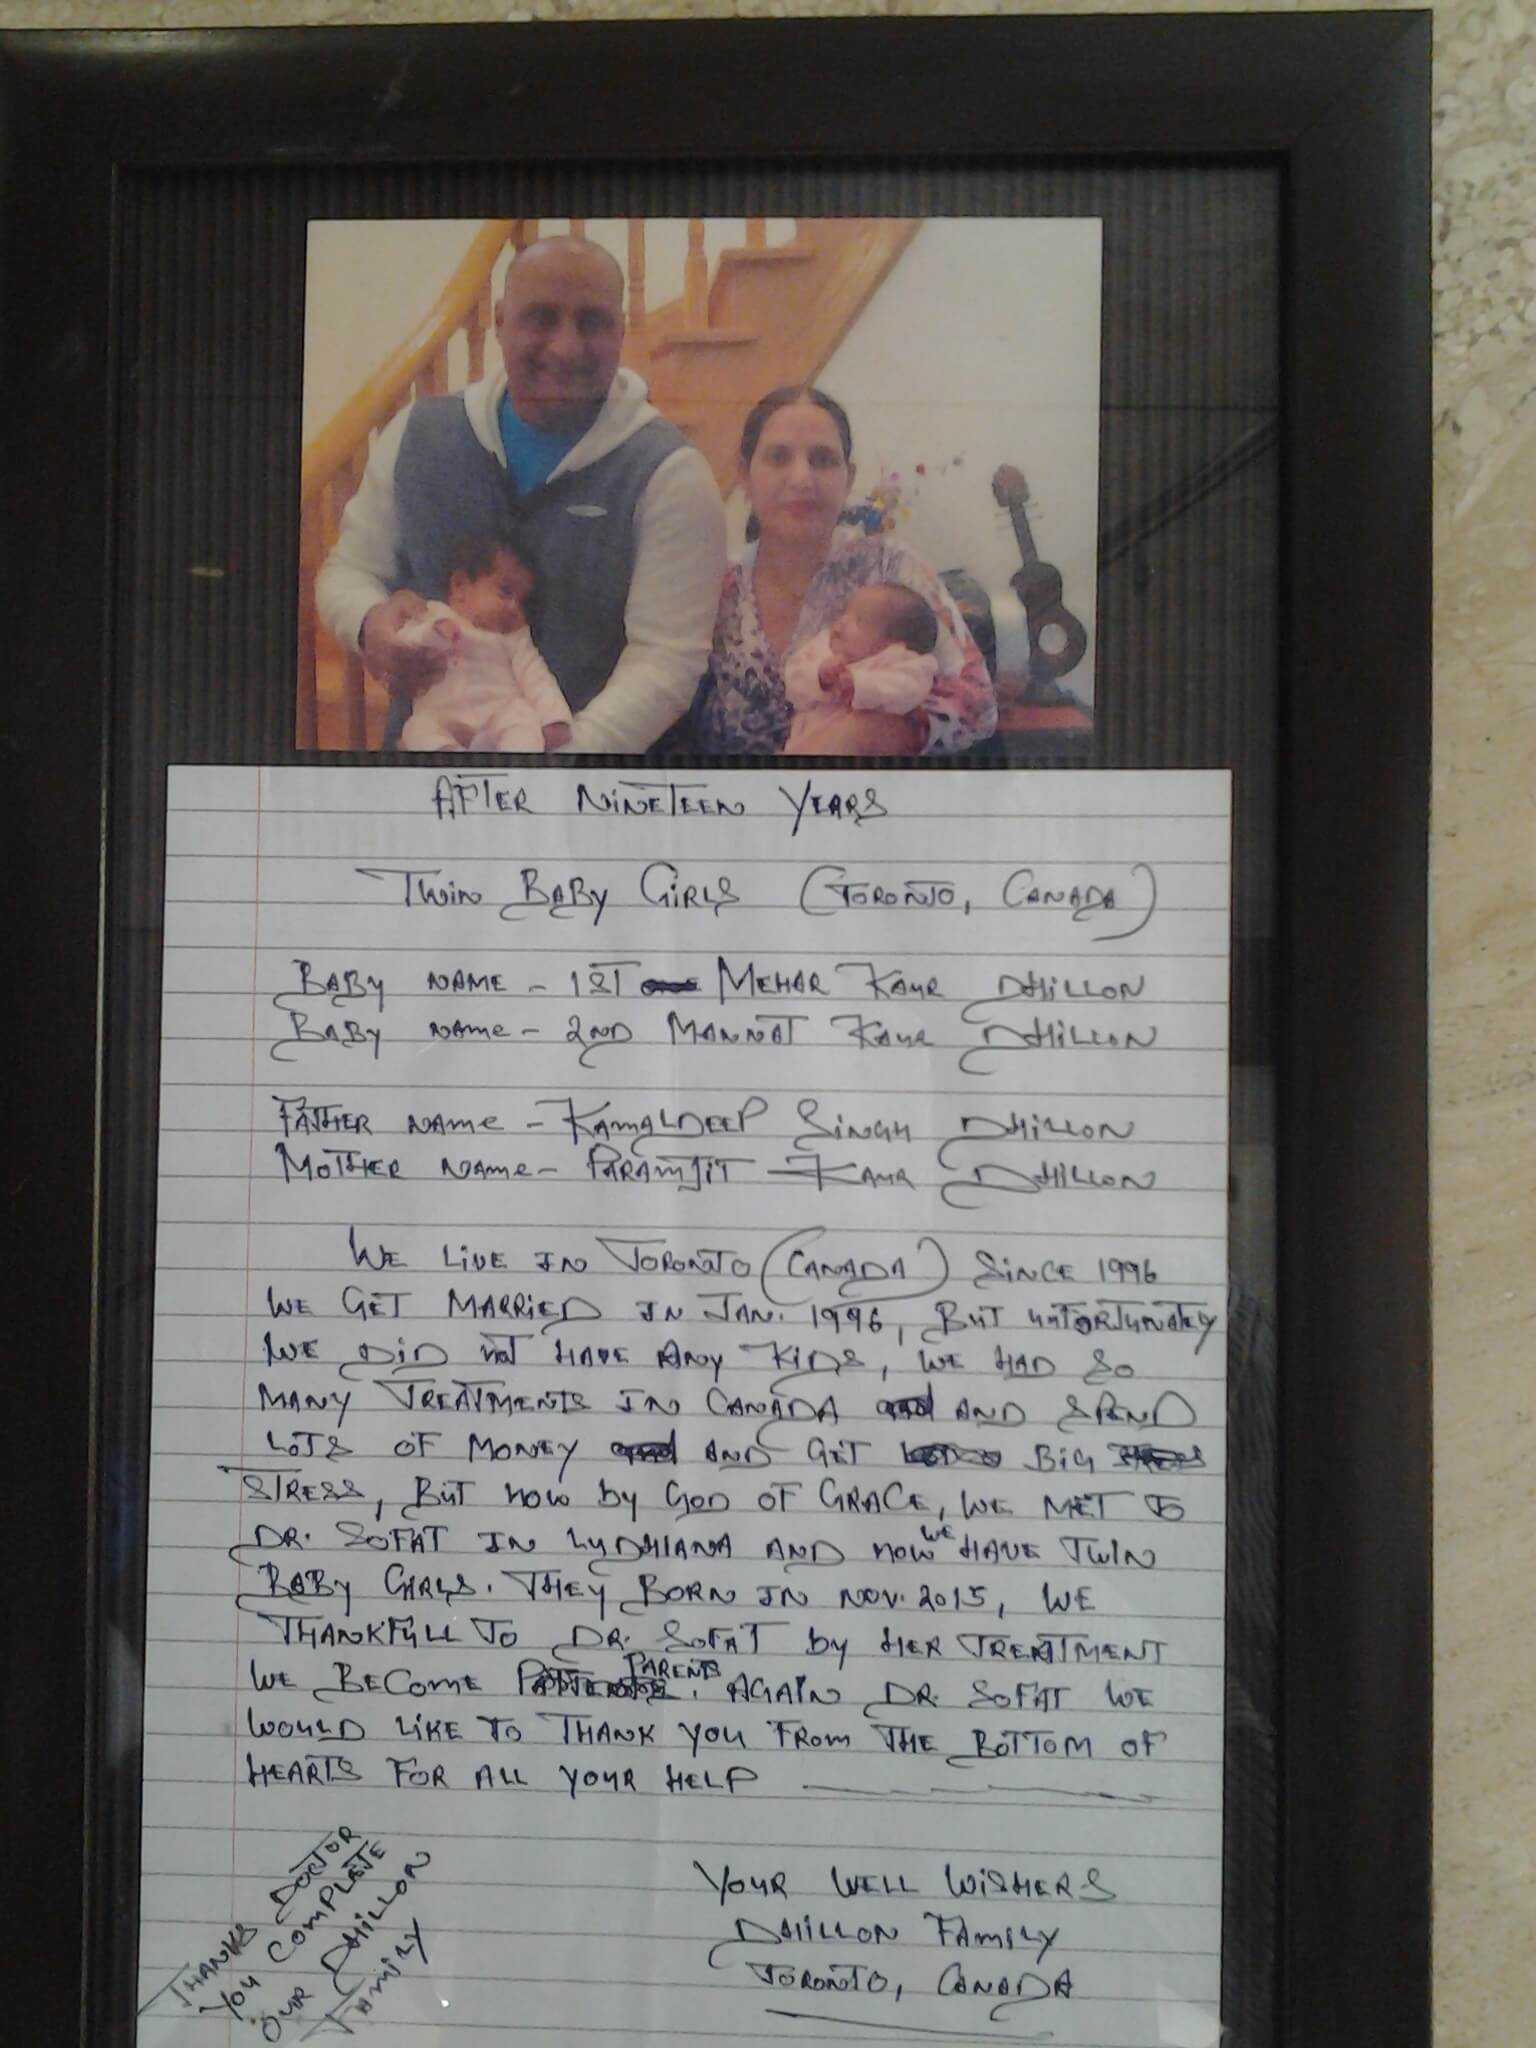 AFTER NINETEEN YEARS
TWIN BABY GIRLS (TORONTO, CANADA)
BABY NAME - 1ST MEHAR KAUR DHILLON
BABY NAME - 2ND MANNAT KAUR DHILLON
FATHER NAME - KAMALDEEP SINGH DHILLON
MOTHER NAME - PARAMJIT KAUR DHILLON
WE LIVE IN TORONTO (CANADA) SINCE 1996
WE GET MARRIED IN JAN. 1996, BUT UNFORTUNATELY
WE DID NOT HAVE ANY KIDS, WE HAD SO
MANY TREATMENTS IN CANADA AND SPEND
LOTS OF MONEY AND GET BIG
STRESS, BUT NOW BY GOD OF GRACE, WE MET TO
DR. SOFAT IN LUDHIANA AND NOW WE HAVE TWIN
BABY GIRLS. THEY BORN IN NOV. 2015, WE
THANKFULL TO DR. SOFAT BY HER TREATMENT
WE BECOME PARENTS. AGAIN DR. SOFAT WE
WOULD LIKE TO THANK YOU FROM THE BOTTOM OF
HEARTS FOR ALL YOUR HELP
THANKS DOCTOR
YOU COMPLETE
OUR DHILLON
FAMILY
YOUR WELL WISHERS
DHILLON FAMILY
TORONTO, CANADA